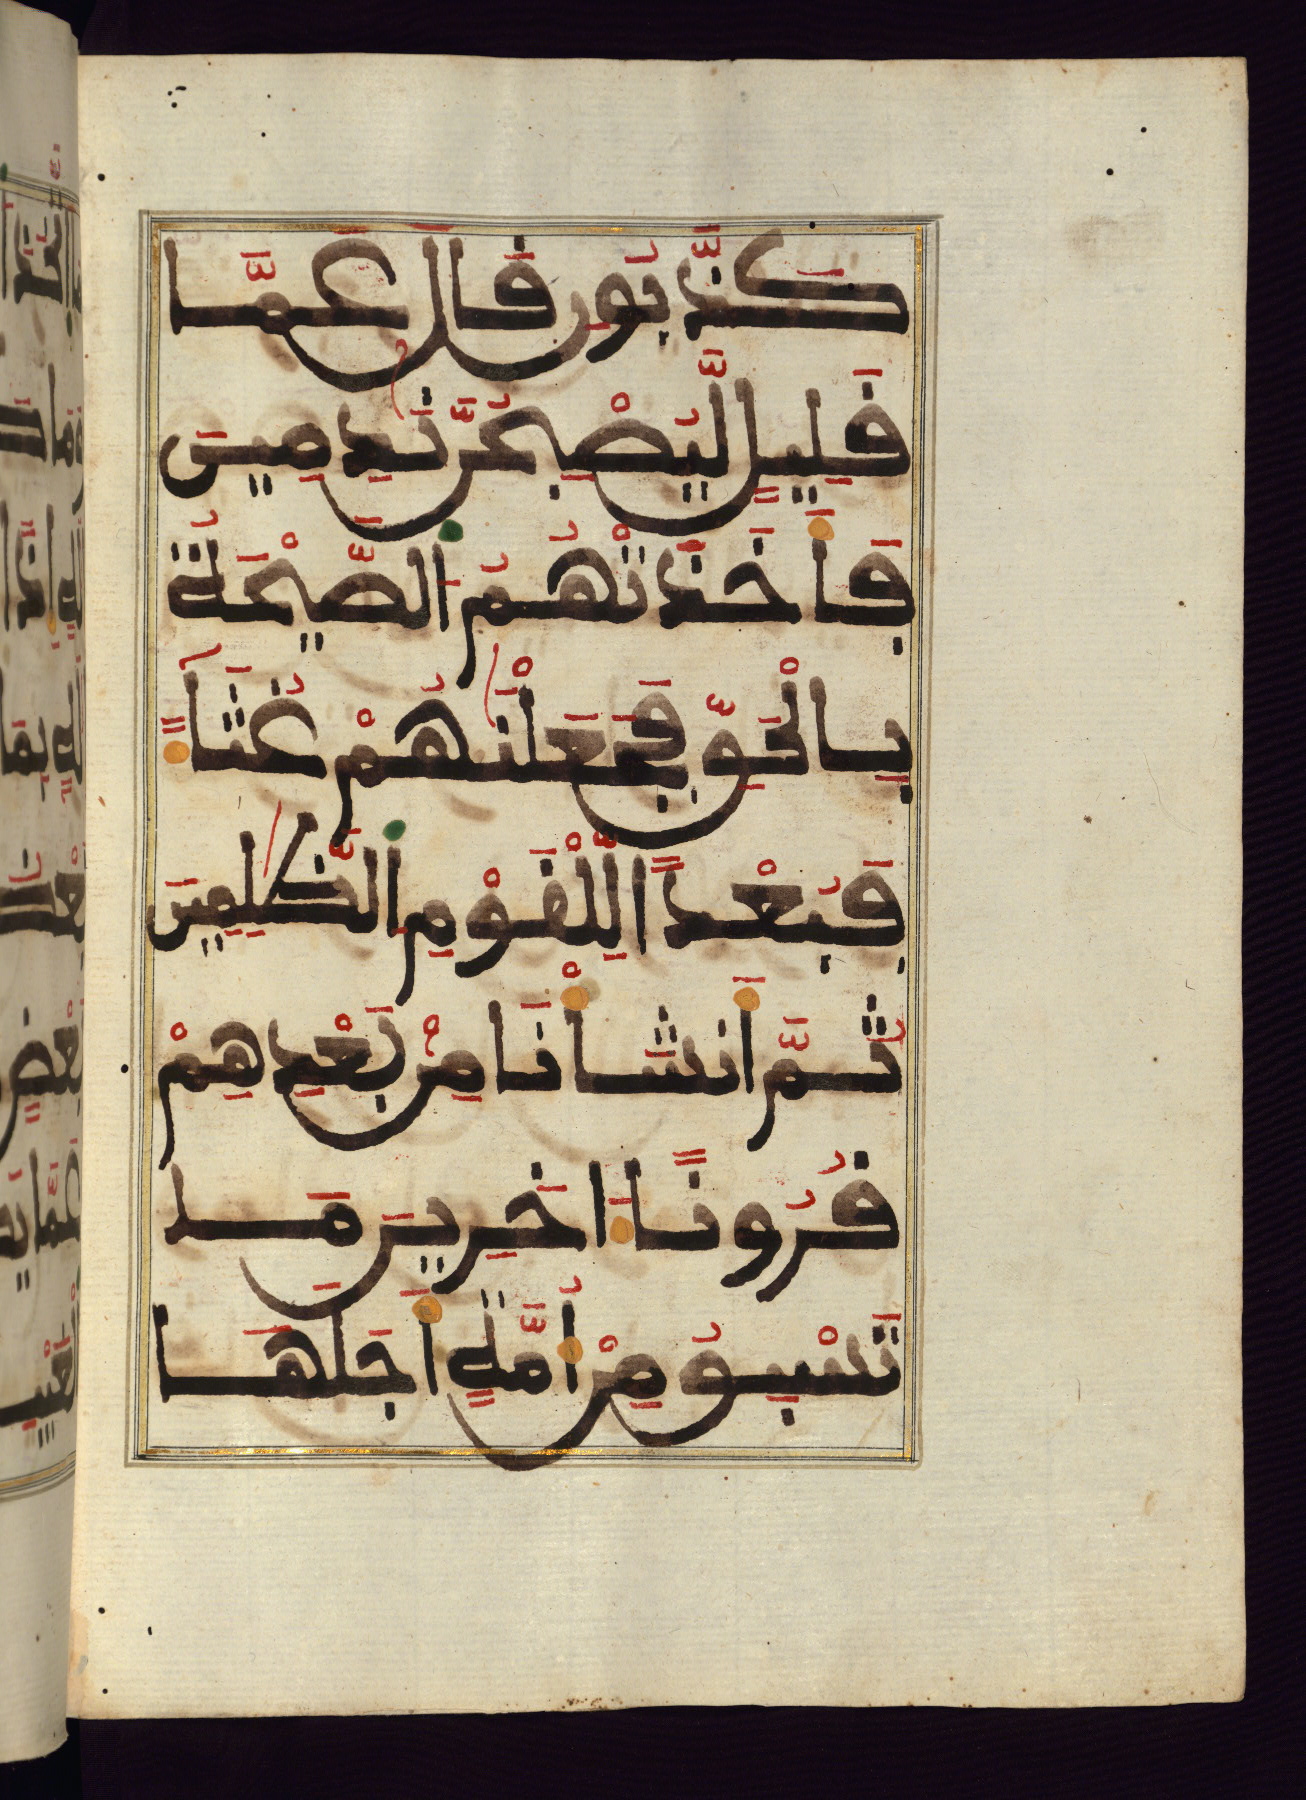 كَذَّبُونِ قَالَ عَمَّا
قَلِيلٍ لَّيُصْبِحُنَّ نَٰدِمِينَ
فَأَخَذَتْهُمُ الصَّيْحَةُ
بِالْحَقِّ فَجَعَلْنَٰهُمْ غُثَاءً
فَبُعْدًا لِّلْقَوْمِ الظَّٰلِمِينَ
ثُمَّ أَنشَأْنَا مِنۢ بَعْدِهِمْ
قُرُونًا ءَاخَرِينَ مَا
تَسْبِقُ مِنْ أُمَّةٍ أَجَلَهَا